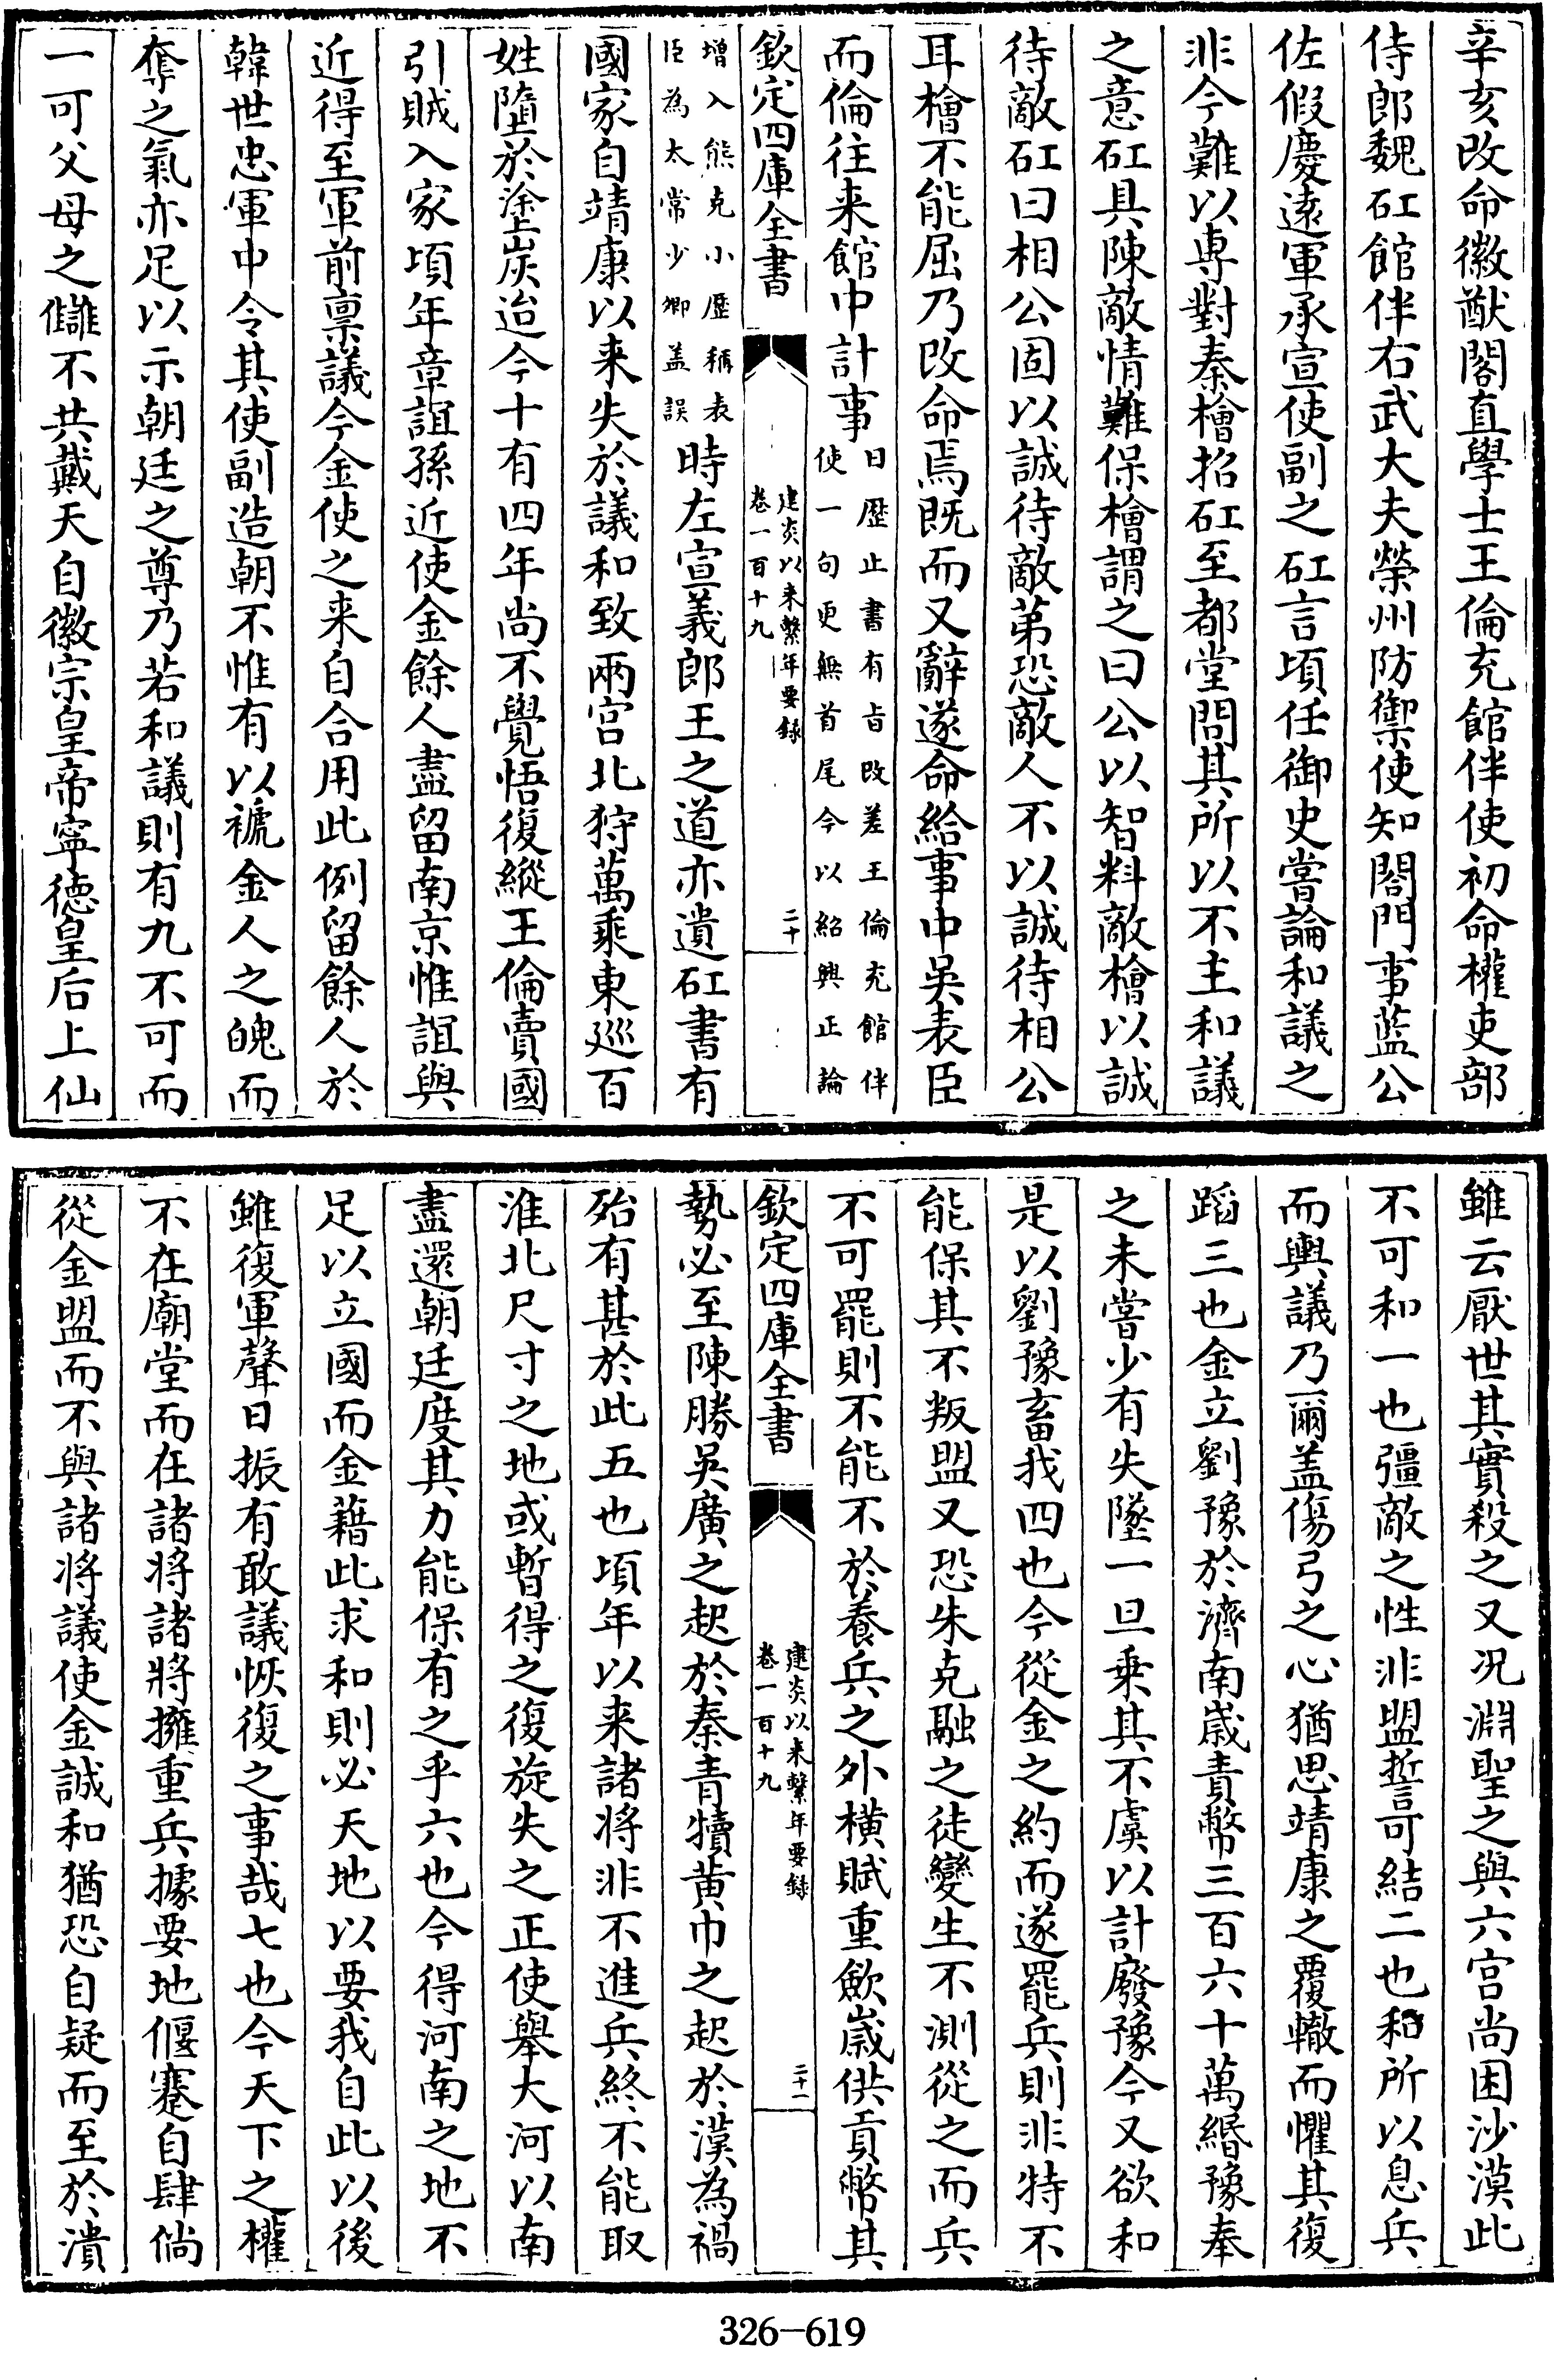 辛亥改命徽猷閣直學士王倫充館伴使初命權吏部
侍郎魏矼館伴右武大夫榮州防禦使知閤門事藍公
佐假慶遠軍承宣使副之矼言頃任御史嘗論和議之
非今難以專對秦檜招矼至都堂問其所以不主和議
之意矼具陳敵情難保檜謂之曰公以智料敵檜以誠
待敵矼曰相公固以誠待敵第恐敵人不以誠待相公
耳檜不能屈乃改命焉既而又辭遂命給事中吳表臣
而倫往来館中計事日歷止書有旨改差王倫充館伴
使一句更無首尾今以紹興正論
欽定四庫全書
建炎以来繫年要錄
卷一百十九
二十
增入熊克小歷稱表
臣為太常少卿盖誤
時左宣義郎王之道亦遺矼書有
國家自靖康以来失於議和致兩宮北狩萬乘東巡百
姓墮於塗炭迨今十有四年尚不覺悟復縱王倫賣國
引賊入家頃年章誼孫近使金餘人盡留南京惟誼與
近得至軍前禀議今金使之来自合用此例留餘人於
韓世忠軍中令其使副造朝不惟有以褫金人之魄而
奪之氣亦足以示朝廷之尊乃若和議則有九不可而
一可父母之讎不共戴天自徽宗皇帝寧德皇后上仙
雖云厭世其實殺之又况淵聖之與六宮尚困沙漠此
不可和一也彊敵之性非盟誓可結二也和所以息兵
而輿議乃爾盖傷弓之心猶思靖康之覆轍而懼其復
蹈三也金立劉豫於濟南歲責幣三百六十萬緡豫奉
之未嘗少有失墜一旦乗其不虞以計廢豫今又欲和
是以劉豫畜我四也今從金之約而遂罷兵則非特不
能保其不叛盟又恐朱克融之徒變生不測從之而兵
不可罷則不能不於養兵之外橫賦重歛歲供貢幣其
欽定四庫全書
建炎以来繫年要錄
卷一百十九
二十一
勢必至陳勝吳廣之起於秦青犢黄巾之起於漢為禍
殆有甚於此五也頃年以来諸將非不進兵終不能取
淮北尺寸之地或暫得之復旋失之正使舉大河以南
盡還朝廷度其力能保有之乎六也今得河南之地不
足以立國而金藉此求和則必天地以要我自此以後
雖復軍聲日振有敢議恢復之事哉七也今天下之權
不在廟堂而在諸將諸將擁重兵據要地偃蹇自肆倘
從金盟而不與諸將議使金誠和猶恐自疑而至於潰
326—619